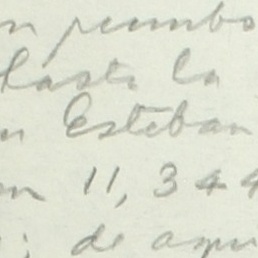 n rumbo
Hasta la
n Esteban
on 11,344
; de aqu